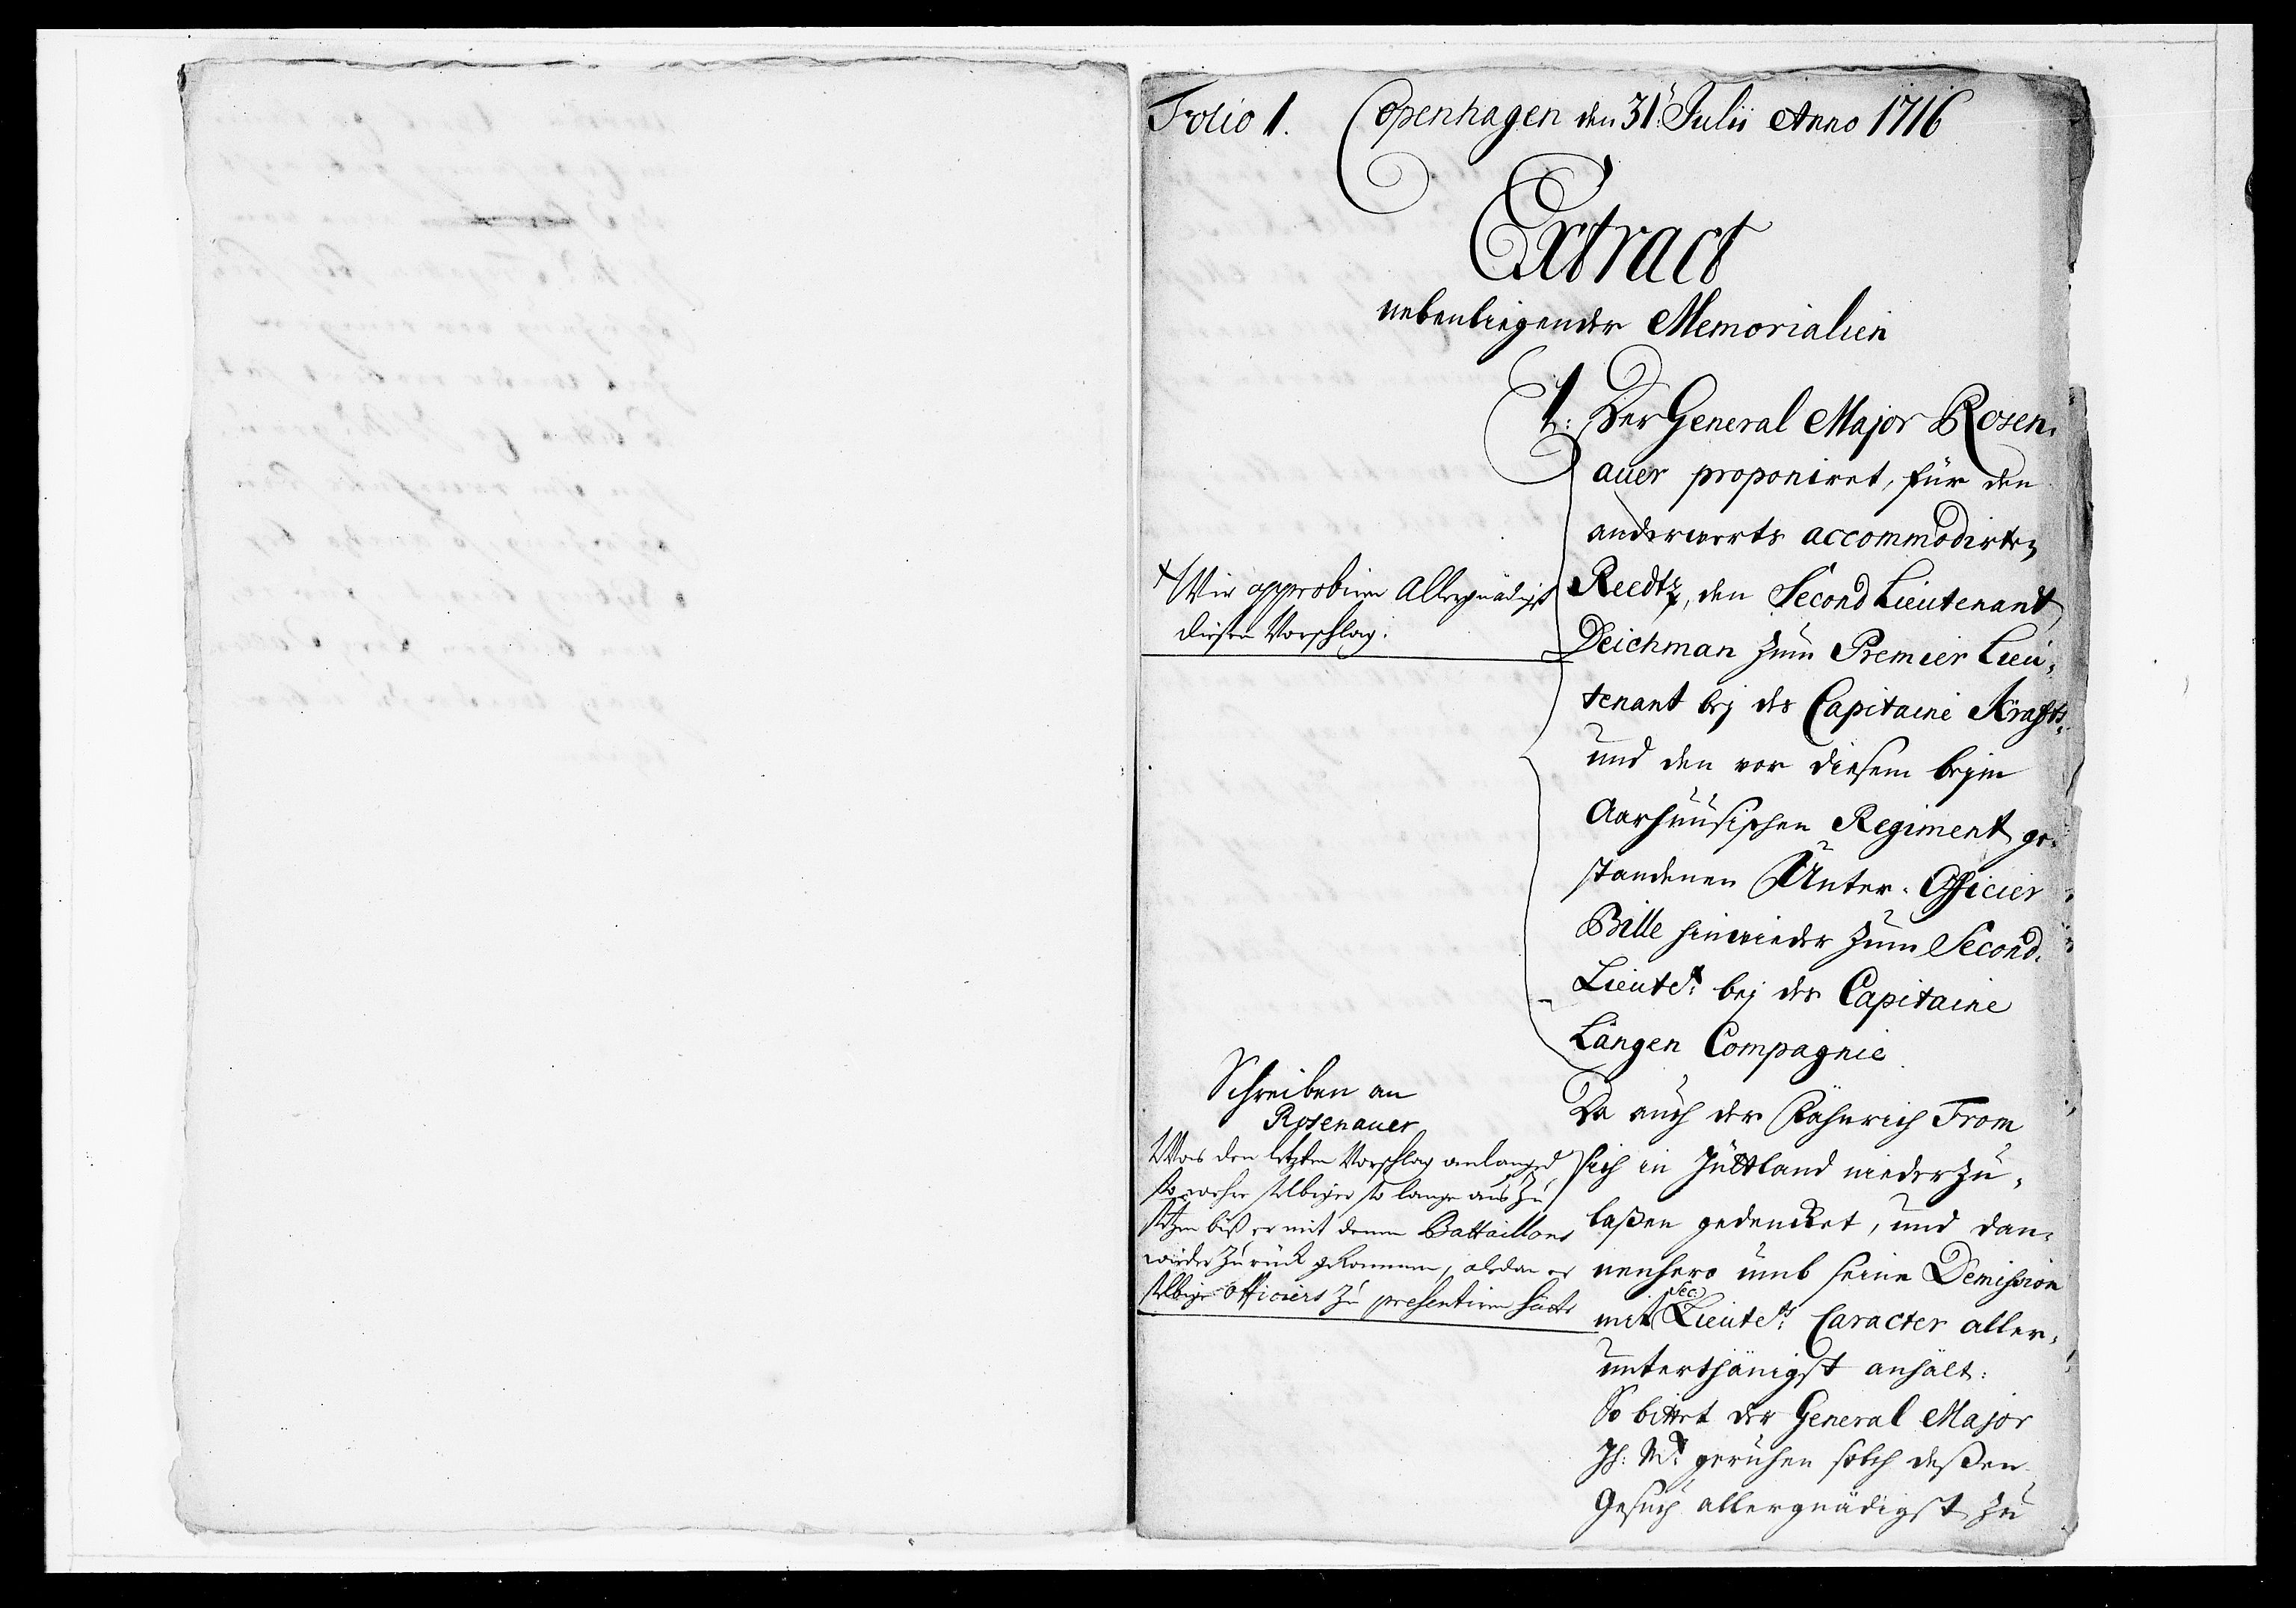 Folio 1. Copenhagen den 31. Julii Anno 1716
Extract
nebenliegender Memorialien
1. Der General Major Rosen-
auer proponiret, für den
anderwerts accommodirten
Reedtz, den Second Lieutenant
Deichman zum Premier Lieu-
tenant bey des Capitaine Kraffts-
und den vor diesem beym
Aarhuusischen Regiment ge-
standenen Unter-Officier
Bille hinwieder zum Second-
Lieutet: bey des Capitaine
Längen Compagnie
Da auch der Fähnrich From
sich in Jüttland niederzu-
laßen gedencket, und dan-
nenhero umb seine Demission
mit Sec. Lieutets: Caracter aller-
unterthänigst anhält:
So bittet der General Major
Ih: Mt: geruhen solch deßen
Gesuch allergnädigst zu
Wir approbiren Allergnädigst
diesen Vorschlag.
Schreiben an
Rosenauer
Was den letzten Vorschlag anlanged
so wehre selbiger so lange aus zu
setzen biß er mit denen Battaillons
wieder zurück gekommen, alsdan er
selbige Officiers zu presentiren hätte